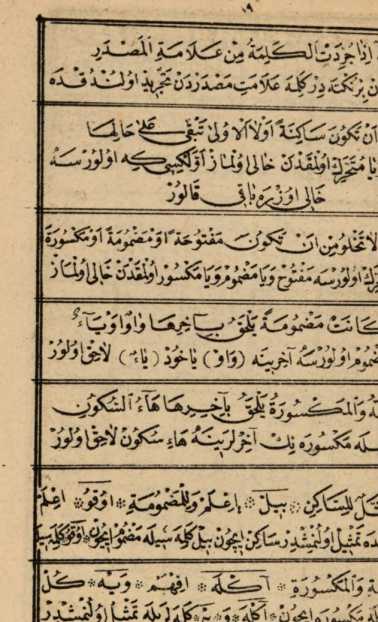 ١٩
اِذَا جُرِّدَتِ الْكَلِمَةُ مِنْ عَلَامَةِ الْمَصْدَرِ
بر نكته در كلمه علامت مصدردن تجريد اولندقده
اَنْ تَكُونَ سَاكِنَةً اَوْلَا اَلْاُولٰى تَبْقٰى عَلٰى حَالِهَا
يا متحرك اولمقدن خالى اولماز اولكيسى كه اولورسه
حالى اوزره باقى قالور
لَا تَخْلُو مِنْ اَنْ تَكُونَ مَفْتُوحَةً اَوْ مَضْمُومَةً اَوْ مَكْسُورَةً
اولورسه مفتوح ويا مضموم ويا مكسور اولمقدن خالى اولماز
كَانَتْ مَضْمُومَةً يَلْحَقُ بِآخِرِهَا وَاوًا وَيَاءً
مضموم اولورسه آخرينه (واو) ياخود (ياء) لاحق اولور
وَالْمَكْسُورَةُ يَلْحَقُ بِآخِرِهَا هَاءُ السُّكُونِ
مكسوره نك آخرلرينه هاء سكون لاحق اولور
لِلسَّاكِنِ ❊ بيل ❊ اِعْلَمْ وَلِلْمَضْمُومَةِ ❊ اوقو ❊
تمثيل اولنمشدر ساكن ايچون بيل كلمه سيله مضموم ايچون اوقو
وَالْمَكْسُورَةِ ❊ آكله ❊ اِفْهَمْ ❊ وَيه ❊ كُلْ
مكسوره ايچون ❊ آكله ❊ و ❊ يه ❊ كلمه لريله تمثيل اولنمشدر